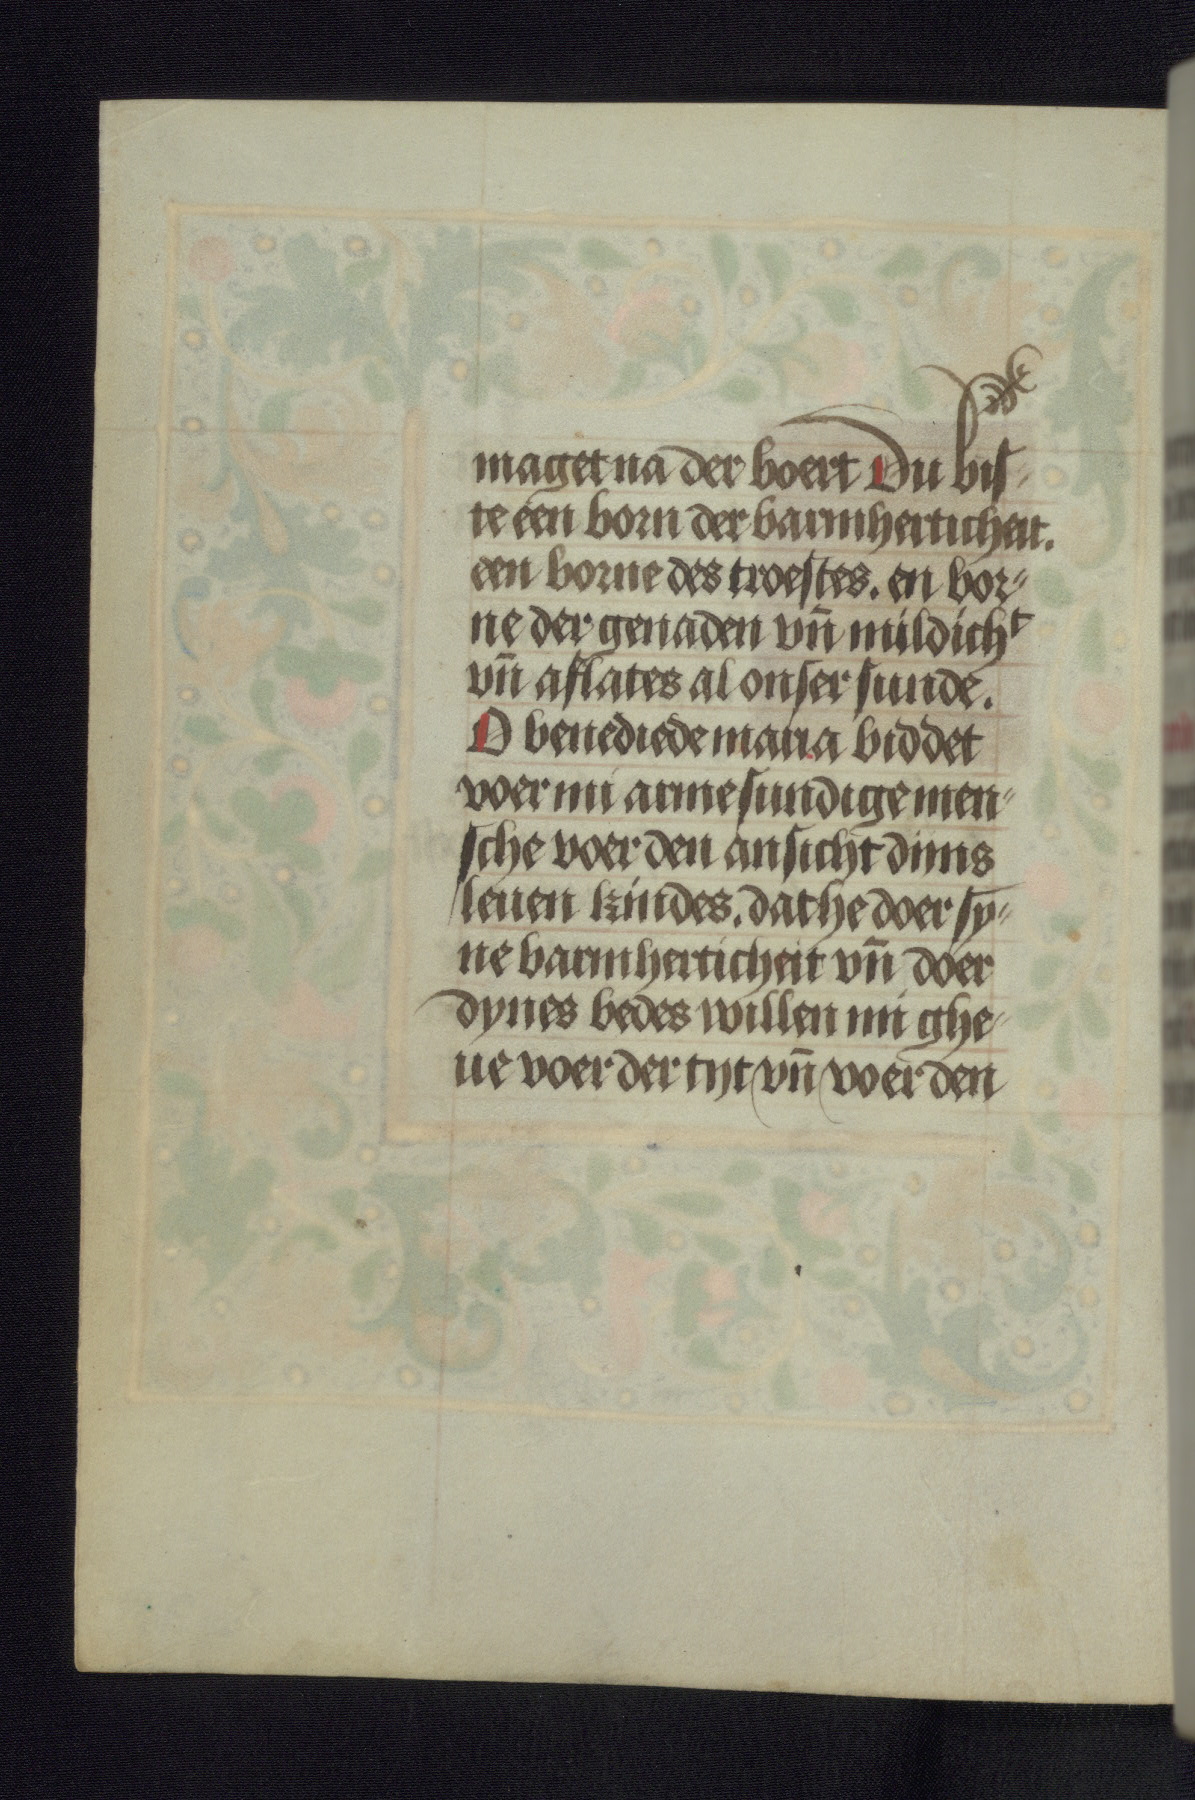 maget na der boert Du bis-
te een born der barmherticheit.
een borne des troestes. en bor-
ne der genaden vñ mildichᵗ
vñ aflates al onser sunde.
O benediede maria biddet
voer mi arme sundige men-
sche voer den ansicht dijns
leuen kindes. dat he doer sy-
ne barmherticheit vñ doer
dynes bedes willen mi ghe-
ue voer der tijt vñ voer den